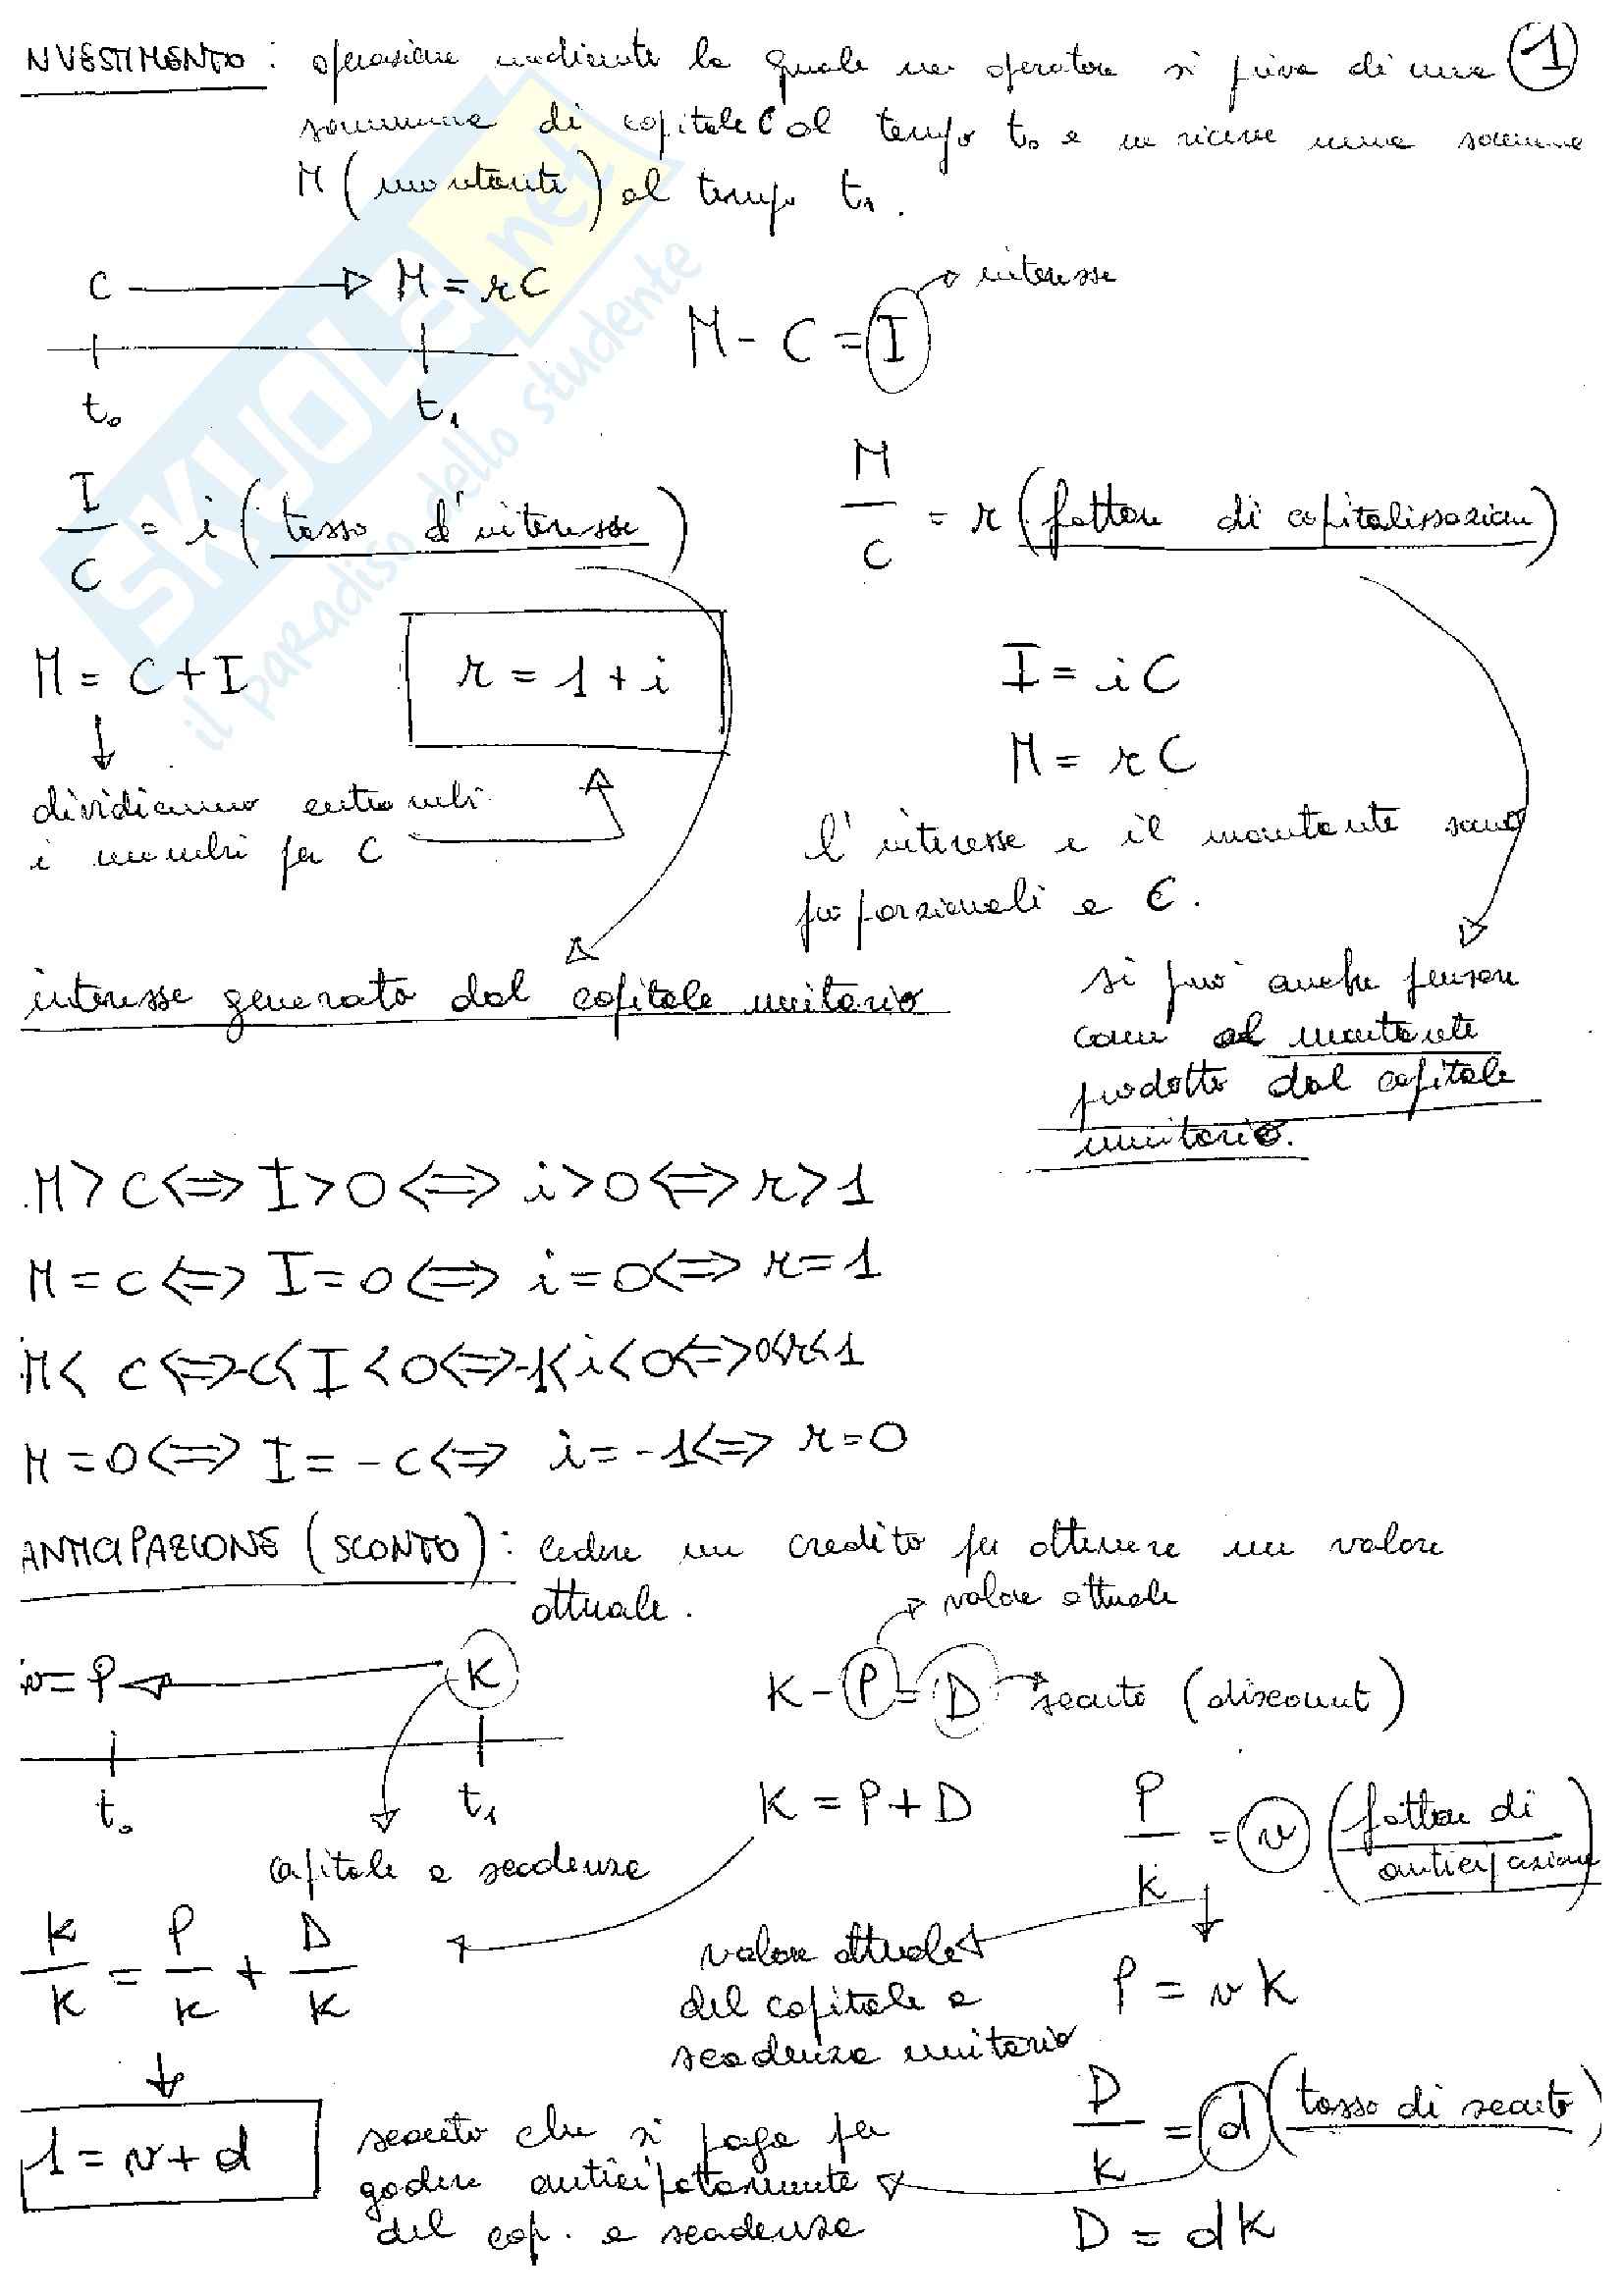 NVESTIMENTO: operazione mediante la quale un operatore si priva di una 1
somma di capitale C al tempo t₀ e ne riceve una somma
M (montante) al tempo t₁.
C → M = rC
t₀ t₁
M - C = I → interesse
I/C = i (tasso d'interesse)
M/C = r (fattore di capitalizzazione)
M = C + I
r = 1 + i
I = iC
M = rC
dividiamo entrambi
i membri per C
l'interesse e il montante sono
proporzionali a C.
interesse generato dal capitale unitario
si può anche pensare
come al montante
prodotto dal capitale
unitario.
M > C ⇔ I > 0 ⇔ i > 0 ⇔ r > 1
M = C ⇔ I = 0 ⇔ i = 0 ⇔ r = 1
M < C ⇔ -C < I < 0 ⇔ -1 < i < 0 ⇔ 0 < r < 1
M = 0 ⇔ I = -C ⇔ i = -1 ⇔ r = 0
ANTICIPAZIONE (SCONTO): cedere un credito per ottenere un valore
attuale.
valore attuale
= P ← K
t₀ t₁
K - P = D → sconto (discount)
capitale a scadenza
K = P + D
P/K = v (fattore di
anticipazione)
K/K = P/K + D/K
valore attuale
del capitale a
scadenza unitario
P = vK
1 = v + d
D/K = d (tasso di sconto)
sconto che si paga per
godere anticipatamente
del cap. a scadenza
D = dK
SKUOLA.net
il paradiso dello studente